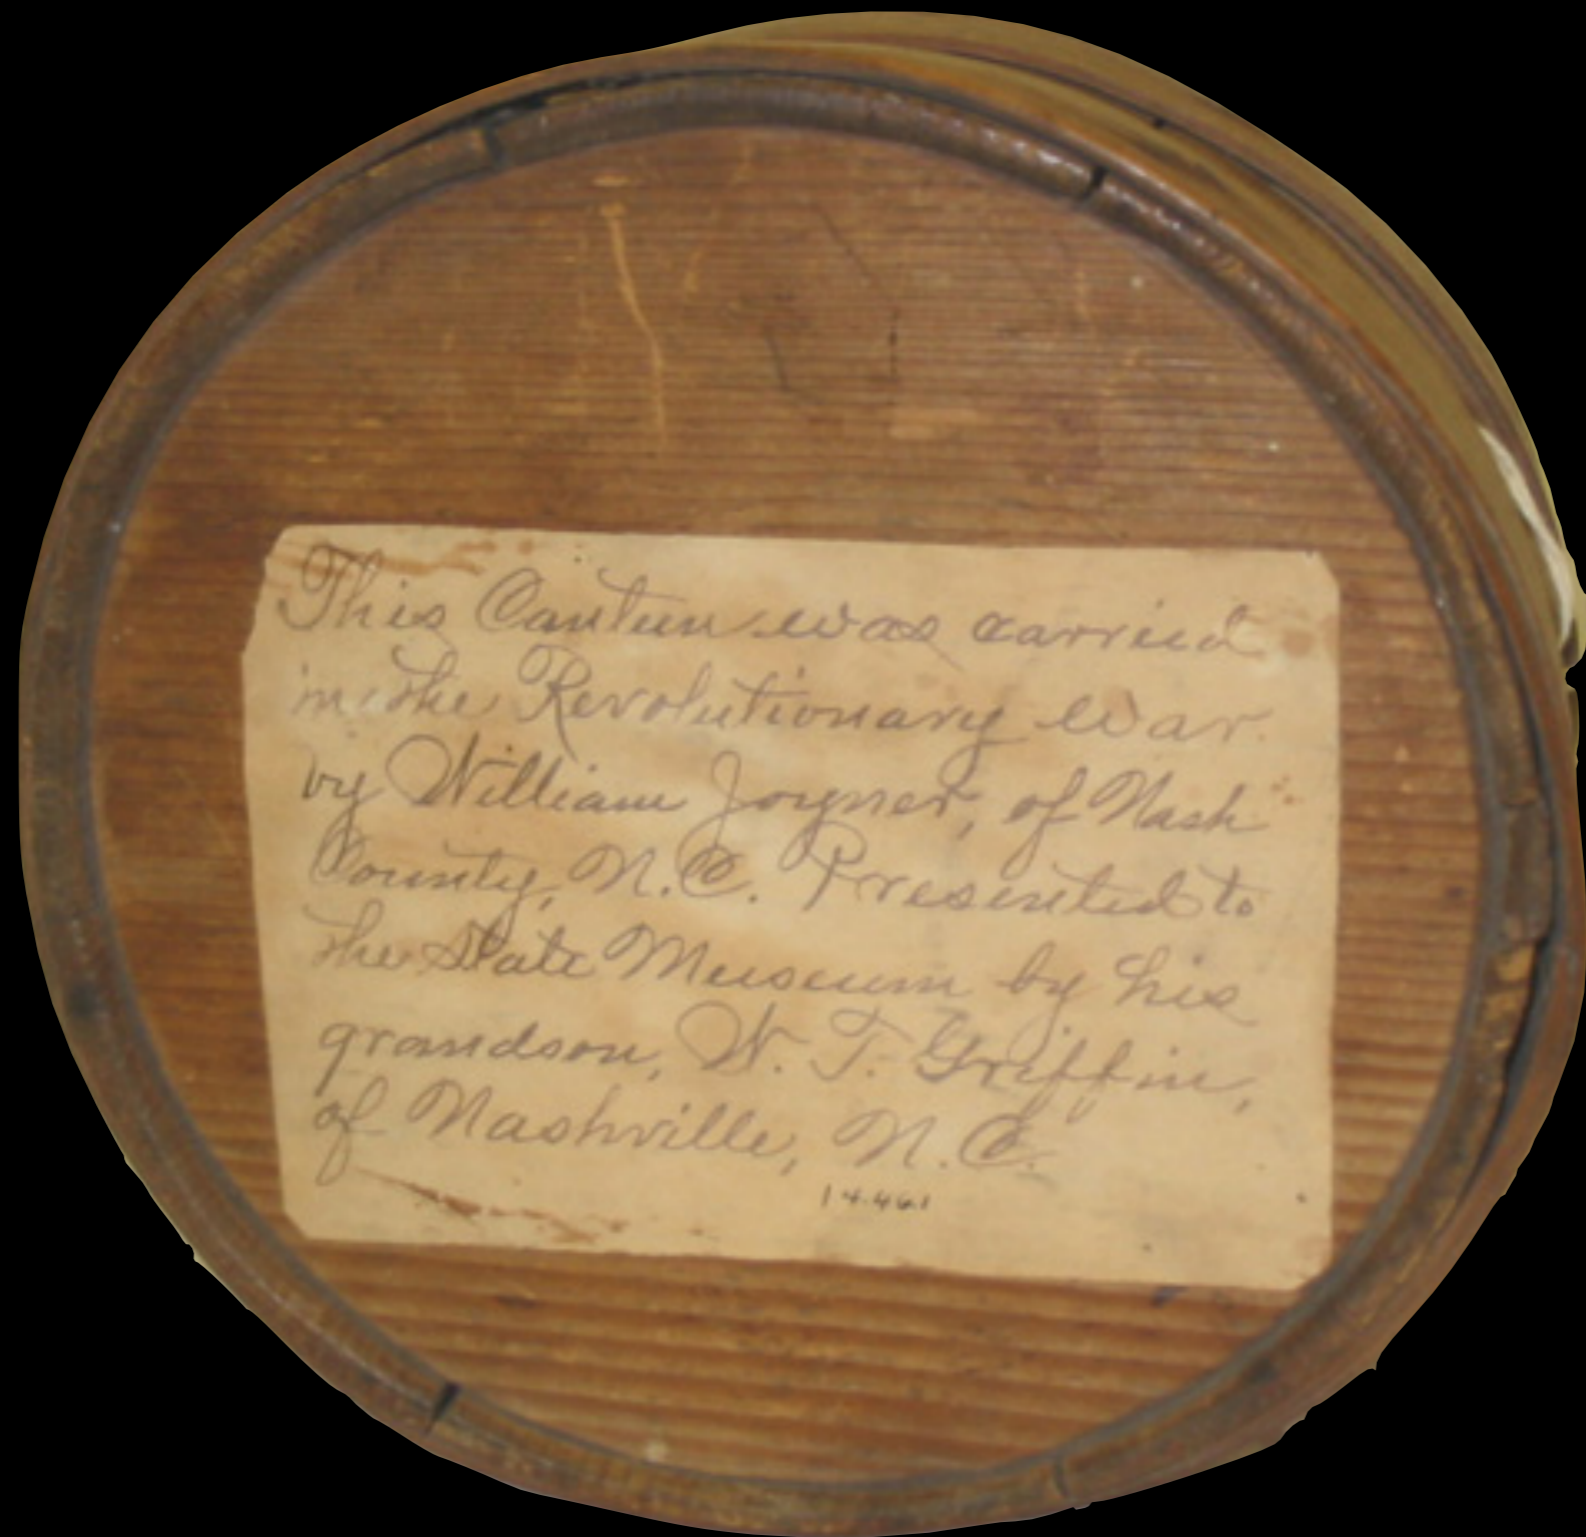 This Canteen was carried
in the Revolutionary War
by William Joyner, of Nash
County, N.C. Presented to
the State Museum by his
grandson, W. T. Griffin,
of Nashville, N.C.
14.461